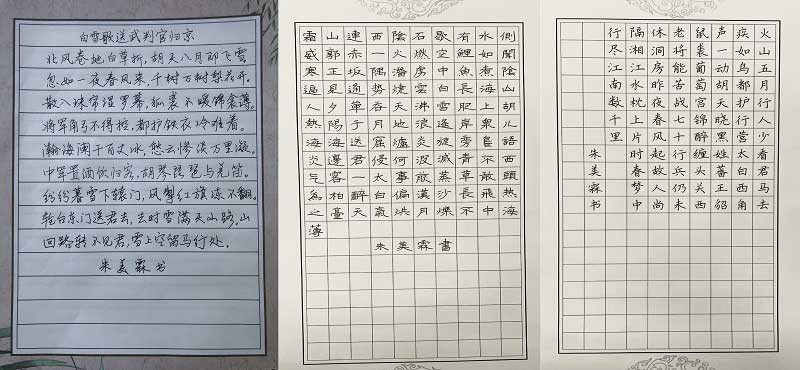 白雪歌送武判官归京
北风卷地白草折，胡天八月即飞雪
忽如一夜春风来，千树万树梨花开
散入珠帘湿罗幕，狐裘不暖锦衾薄。
将军角弓不得控，都护铁衣冷难着。
瀚海阑干百丈冰，愁云惨淡万里凝。
中军置酒饮归客，胡琴琵琶与羌笛。
纷纷暮雪下辕门，风掣红旗冻不翻。
轮台东门送君去，去时雪满天山路，山
回路转不见君，雪上空留马行处。
朱美霖书
側聞陰山胡儿語西頭熱海
水如煮海上眾鳥不敢飛中
有鯉魚長肥岸旁青草長不
歇空中白雪遙旋滅蒸沙爍
石燃虜雲沸浪炎波煎漢月
陰火潛燒天地爐何事偏烘
西一隅勢吞月窟侵太白氣
連赤坂通單于送君一醉天
山郭正見夕陽海邊落柏臺
霜威寒逼人熱海炎氣為之薄
朱美霖書
火山五月行人少看君马去
疾如鸟都护行营太白西角
声一动胡天晓黑姓蕃王貂
鼠裘葡萄宫锦醉缠头关西
老将能苦战七十行兵仍未
休洞房昨夜春风起故人尚
隔湘江水枕上片时春梦中
行尽江南数千里
朱美霖书